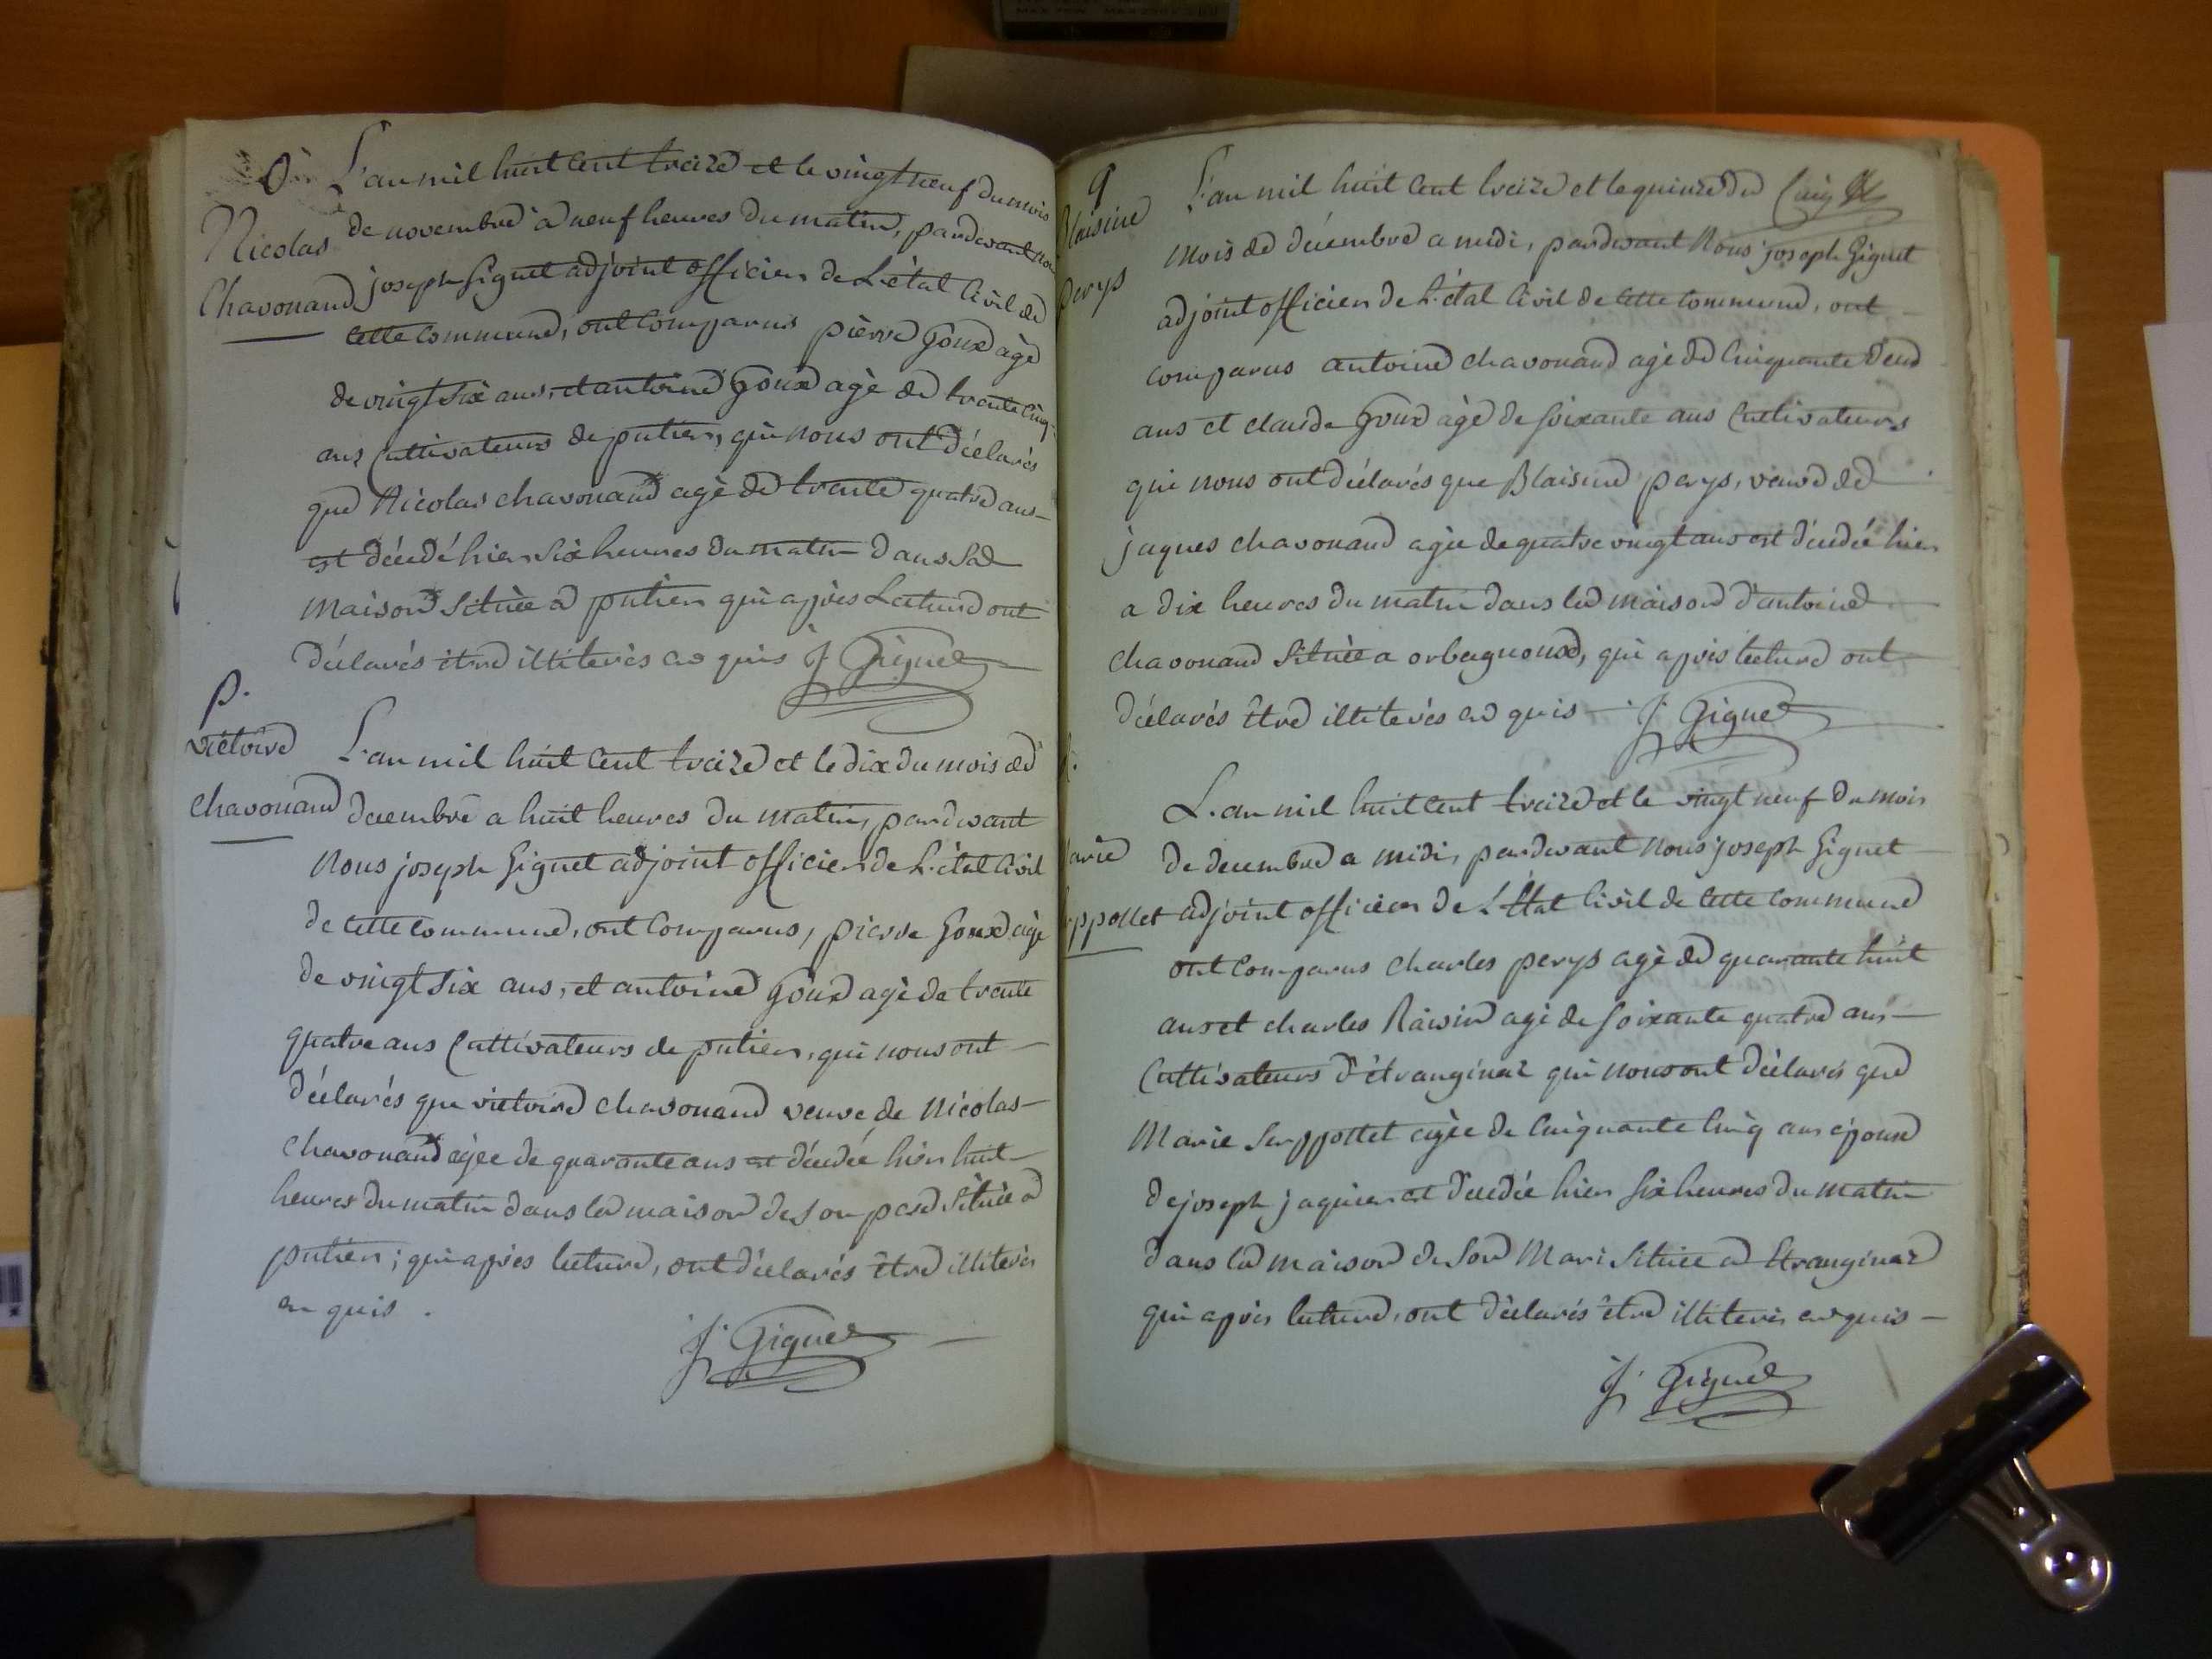 O.
Nicolas
Chavonand
L'an mil huit cent treize et le vingt neuf du mois
de novembre a neuf heures du matin, pardevant nous
joseph Giguet adjoint officier de L'état Civil de
cette commune, ont comparus pierre Goux agè
de vingt six ans, et antoine Goux agè de trente cinq
ans Cultivateurs de putier, qui nous ont déclarés
que Nicolas chavonand agè de trente quatre ans
est décédé hier six heures du matin dans sa
maison située a putier qui après Lecture ont
déclarés être illiterés en quis J. Giguet
p.
victoire
chavonand
L'an mil huit Cent treize et le dix du mois de
decembre a huit heures du matin, pardevant
Nous joseph Giguet adjoint officier de L'état Civil
de cette commune, ont comparus, pierre Goux agè
de vingt six ans, et antoine Goux agè de trente
quatre ans Cultivateurs de putier, qui nous ont
déclarés que victoire chavonand veuve de Nicolas
Chavonand agée de quarante ans est décédée hier huit
heures du matin dans la maison de son pere située a
putier; qui après lecture, ont déclarés être illiterés
en quis.
J. Giguet
q
Blaisine
perys
L'an mil huit Cent treize et le quinze du
Mois de décembre a midi, pardevant Nous joseph Giguet
adjoint officier de L'état Civil de cette commune, ont
comparus antoine chavonand agè de Cinquante deux
ans et claude Goux agè de soixante ans Cultivateurs
qui nous ont déclarés que Blaisine perys, veuve de
jaques chavonand agée de quatre vingt ans est décédée hier
a dix heures du matin dans la maison d'antoine
chavonand Située a orbagnoux, qui après lecture ont
déclarés être illiterés en quis J. Giguet
arie
rppollet
L'an mil huit cent treize et le vingt neuf du mois
de decembre a midi, pardevant Nous joseph Giguet
adjoint officier de L'État Civil de cette commune
ont comparus charles perys agè de quarante huit
ans et charles Raisin agè de soixante quatre ans
Cultivateurs d'étranginaz qui nous ont déclarés que
Marie Serppollet agée de Cinquante Cinq ans épouse
de joseph jaquier est décédée hier six heures du matin
dans la maison de son Mari située a Etranginaz
qui après lecture, ont déclarés être illiterés en quis
J. Giguet